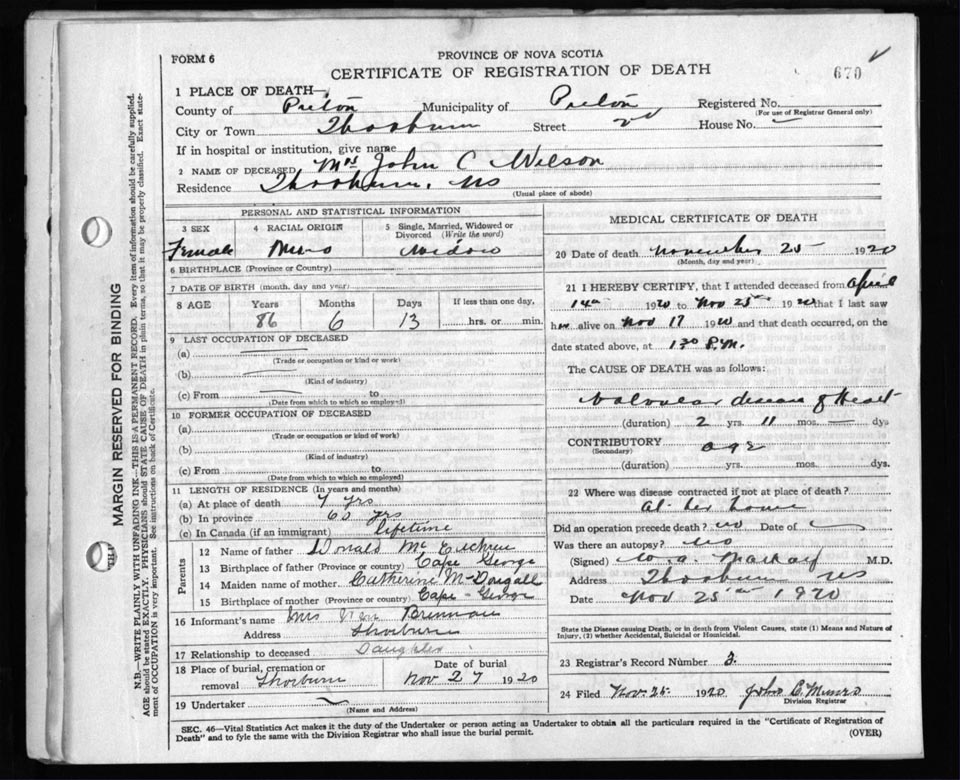 FORM 6
PROVINCE OF NOVA SCOTIA
CERTIFICATE OF REGISTRATION OF DEATH
670
1 PLACE OF DEATH—
County of Pictou Municipality of Pictou Registered No.
(For use of Registrar General only)
City or Town Thorburn Street House No.
If in hospital or institution, give name
2 NAME OF DECEASED Mrs John C Wilson
Residence Thorburn, NS
(Usual place of abode)
PERSONAL AND STATISTICAL INFORMATION
3 SEX 4 RACIAL ORIGIN 5 Single, Married, Widowed or Divorced (Write the word)
Female widow
6 BIRTHPLACE (Province or Country)
7 DATE OF BIRTH (month, day and year)
8 AGE Years Months Days If less than one day,
86 6 13 hrs. or min.
9 LAST OCCUPATION OF DECEASED
(a)
(Trade or occupation or kind or work)
(b)
(Kind of industry)
(c) From to
(Date from which to which so employed)
10 FORMER OCCUPATION OF DECEASED
(a)
(Trade or occupation or kind of work)
(b)
(Kind of industry)
(c) From to
(Date from which to which so employed)
11 LENGTH OF RESIDENCE (In years and months)
(a) At place of death 7 yrs
(b) In province 60 yrs
(c) In Canada (if an immigrant) lifetime
Parents
12 Name of father Donald McEachren
13 Birthplace of father (Province or country) Cape George
14 Maiden name of mother Catherine McDougall
15 Birthplace of mother (Province or country) Cape George
16 Informant's name Mrs Brennan
Address Thorburn
17 Relationship to deceased Daughter
18 Place of burial, cremation or removal Thorburn Date of burial Nov 27 1920
19 Undertaker
(Name and Address)
MEDICAL CERTIFICATE OF DEATH
20 Date of death November 25 1920
(Month, day and year)
21 I HEREBY CERTIFY, that I attended deceased from April
14th 1920 to Nov 25th 1920 that I last saw
her alive on Nov 17 1920 and that death occurred, on the
date stated above, at 1 30 P.M.
The CAUSE OF DEATH was as follows:
Valvular disease of Heart
(duration) 2 yrs. 11 mos. — dys
CONTRIBUTORY age
(Secondary)
(duration) yrs. mos. dys.
22 Where was disease contracted if not at place of death?
At her home
Did an operation precede death? no Date of
Was there an autopsy? No
(Signed) MacKay M.D.
Address Thorburn NS
Date Nov 25th 1920
State the Disease causing Death, or in death from Violent Causes, state (1) Means and Nature of Injury, (2) whether Accidental, Suicidal or Homicidal.
23 Registrar's Record Number 3.
24 Filed Nov 25. 1920 John C. Munro
Division Registrar
SEC. 46—Vital Statistics Act makes it the duty of the Undertaker or person acting as Undertaker to obtain all the particulars required in the "Certificate of Registration of
Death" and to fyle the same with the Division Registrar who shall issue the burial permit. (OVER)
MARGIN RESERVED FOR BINDING
N.B.—WRITE PLAINLY WITH UNFADING INK—THIS IS A PERMANENT RECORD. Every item of information should be carefully supplied.
AGE should be stated EXACTLY. PHYSICIANS should STATE CAUSE OF DEATH in plain terms, so that it may be properly classified. Exact statement of OCCUPATION is very important. See instructions on back of Certificate.